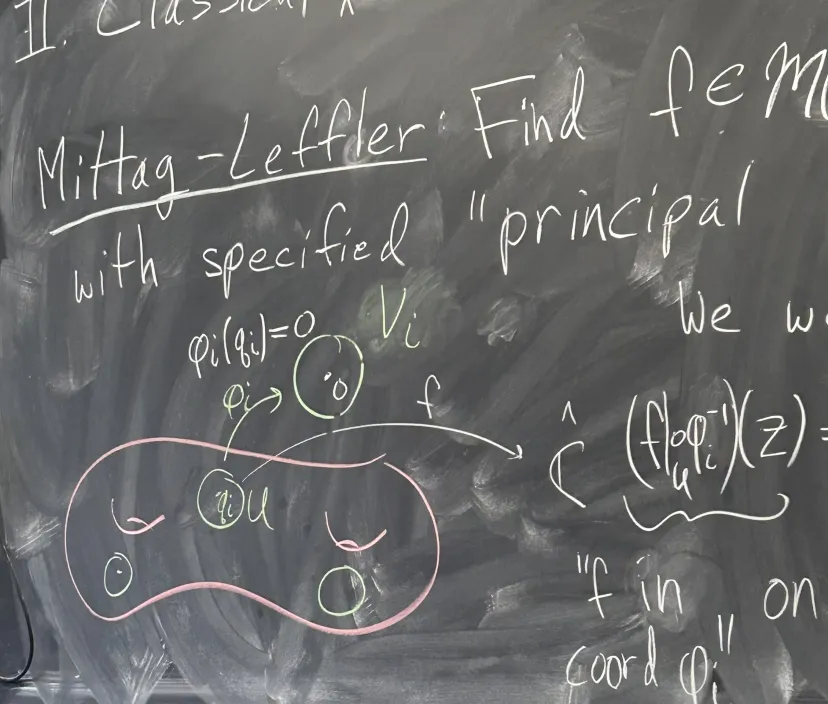 II. Classical
Mittag-Leffler: Find f ∈ M
with specified "principal
We w
φi(qi)=0
Vi
φi
0
f
Ĉ (f|_U∘φi⁻¹)(z) =
qi U
"f in on
coord φi"